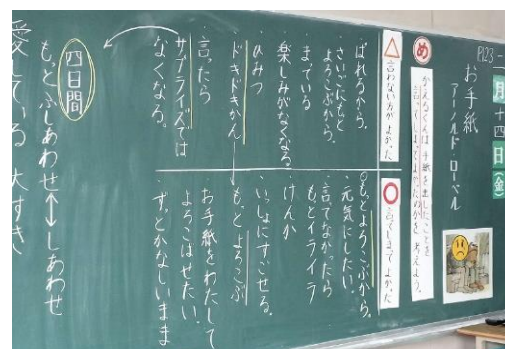 P123-
月
十四
日
(金)
お手紙
アーノルド・ローベル
め
かえるくんは、手紙を出したことを
言ってしまってよかったのかを考えよう。
△
言わない方がよかった
ばれるから。
さいごにもっと
よろこぶから。
まっている
楽しみがなくなる。
ひみつ
ドキドキかん
言ったら
サプライズでは
なくなる。
○
言ってしまってよかった
◎もっとよろこぶから。
元気にしたい。
言ってなかったら
もっとイライラ
けんか
いっしょにすごせる。
もっとよろこぶ
お手紙をわたして
よろこばせたい。
ずっとかなしいまま
四日間
もっとふしあわせ↔しあわせ
愛している 大すき